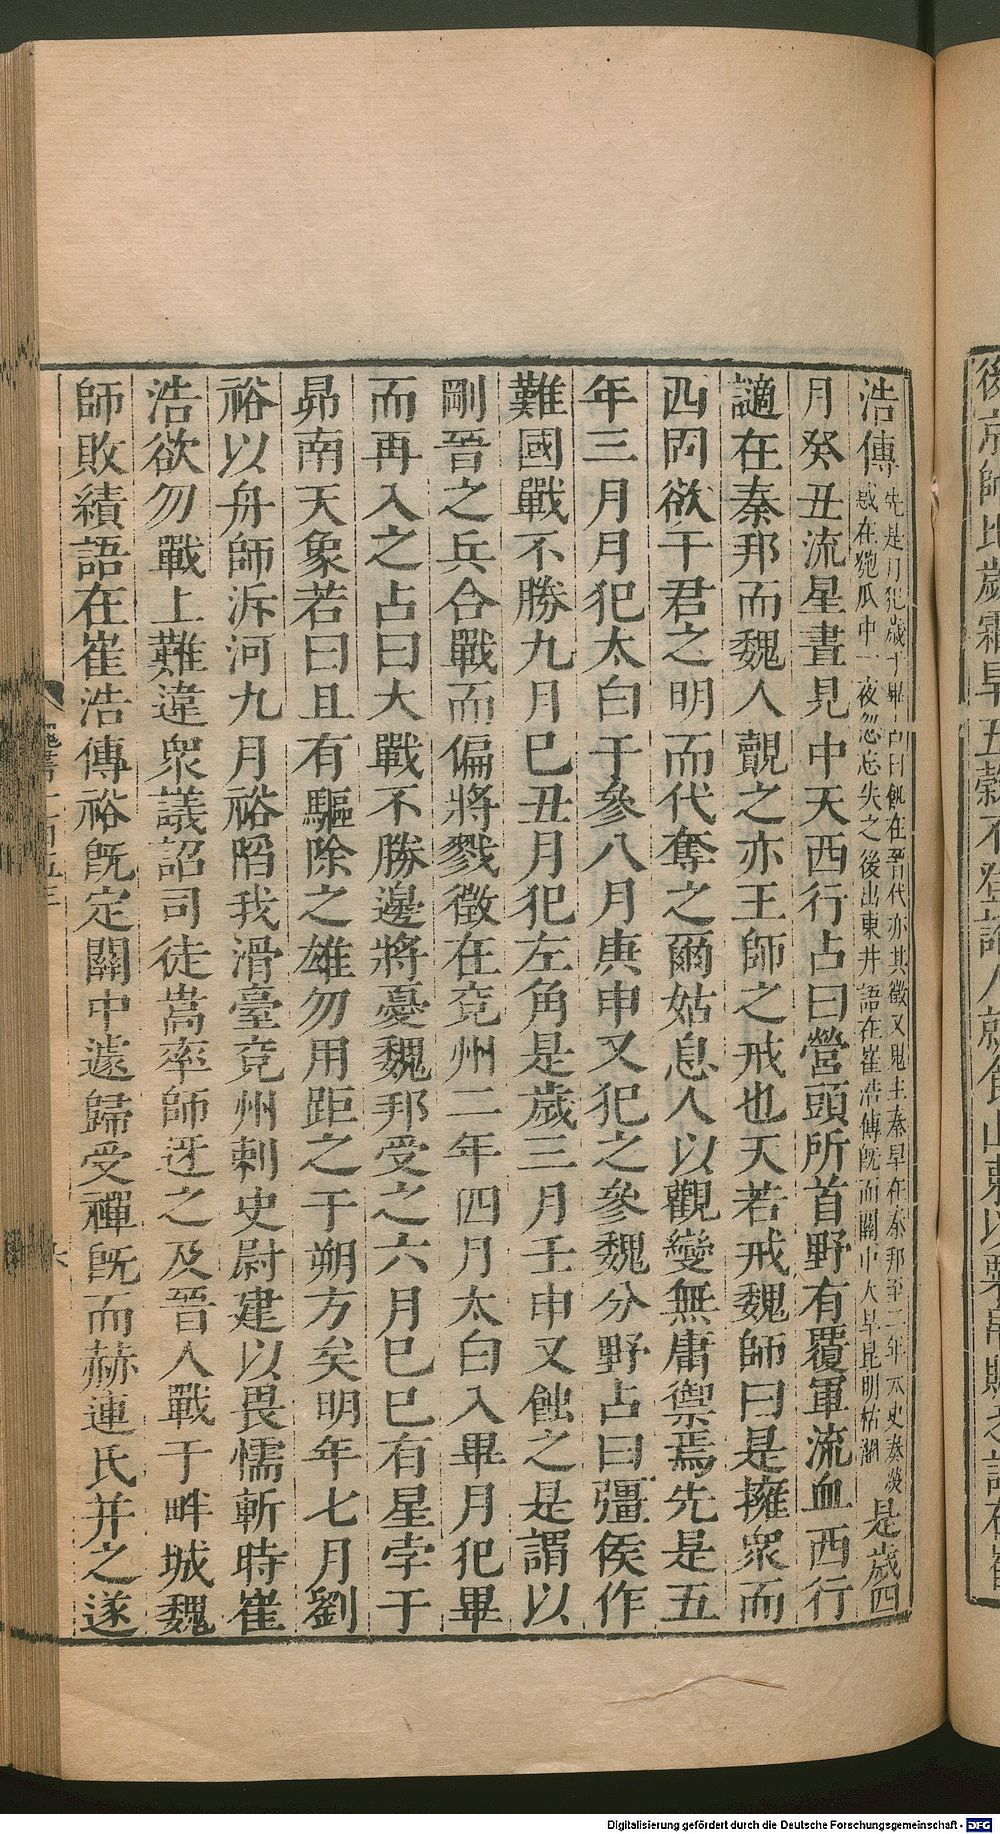 後京師比歲霜旱五穀不登詔人就食山東以粟帛賑乏語在崔
浩傳
先是月犯歲于畢占曰飢在晉代亦其徵又鬼主秦旱在秦邦至二年太史奏熒
惑在匏瓜中一夜忽忘失之後出東井語在崔浩傳既而關中大旱昆明枯涸
是歲四
月癸丑流星晝見中天西行占曰營頭所首野有覆軍流血西行
謫在秦邦而魏人覿之亦王師之戒也天若戒魏師曰是擁衆而
西固欲干君之明而代奪之爾姑息人以觀變無庸禦焉先是五
年三月月犯太白于參八月庚申又犯之參魏分野占曰彊侯作
難國戰不勝九月巳丑月犯左角是歲三月壬申又蝕之是謂以
剛晉之兵合戰而偏將戮徵在兗州二年四月太白入畢月犯畢
而再入之占曰大戰不勝邊將憂魏邦受之六月巳巳有星孛于
昴南天象若曰且有驅除之雄勿用距之于朔方矣明年七月劉
裕以舟師泝河九月裕陷我滑臺兗州刺史尉建以畏懦斬時崔
浩欲勿戰上難違衆議詔司徒嵩率師迓之及晉人戰于畔城魏
師敗績語在崔浩傳裕既定關中遽歸受禪既而赫連氏并之遂
Digitalisierung gefördert durch die Deutsche Forschungsgemeinschaft - DFG